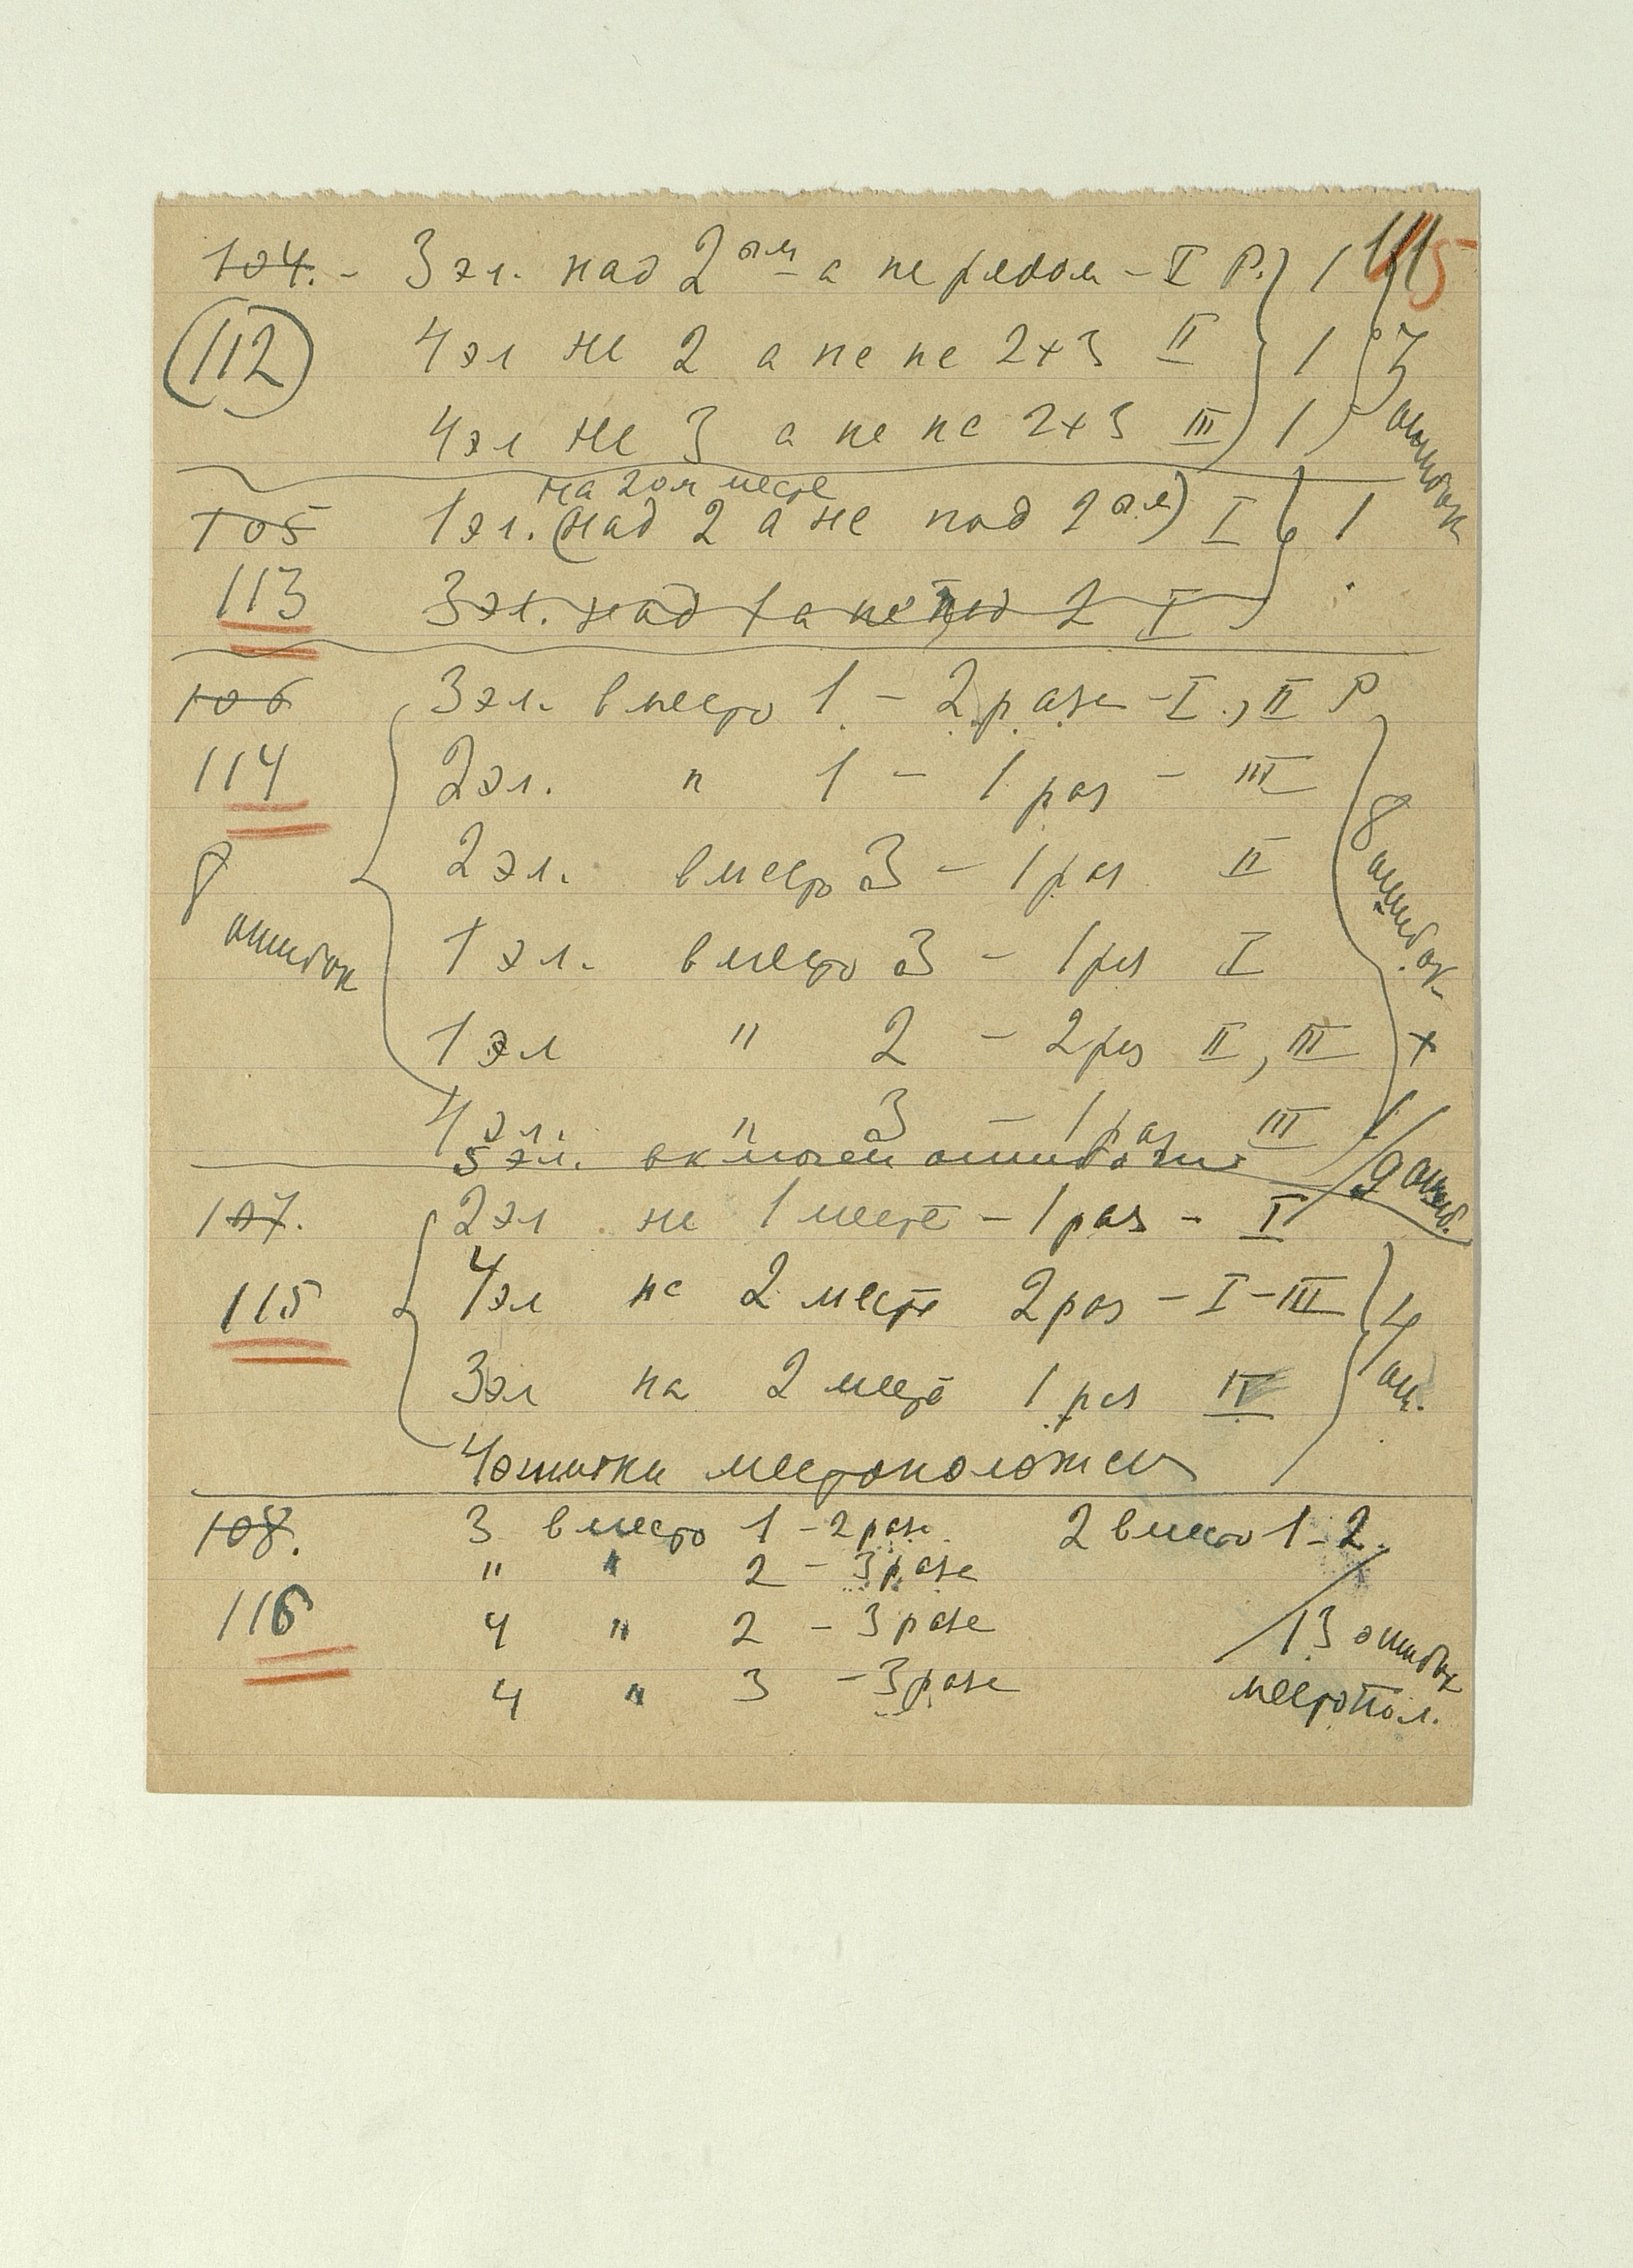 115
104. - 3 эл. над 2ым а не рядом - I Р. } 1
112
4 эл на 2 а не на 2+3 II 1 3
4 эл на 3 а не на 2+3 III 1 ошибок
на 2ом месте
105 1 эл. (над 2 а не под 2эл) I 1
113 3 эл. над 1 а не под 2 I
106 3 эл. вместо 1 - 2 раза - I, II Р
114 2 эл. " 1 - 1 раз - III
2 эл. вместо 3 - 1 раз II
8 ошибок 8 ошибок
1 эл. вместо 3 - 1 раз I
1 эл " 2 - 2 раз II, III +
4 эл. " 3 - 1 раз III 1
5 эл. включен ошибочно 9 ошиб.
107. 2 эл на 1 месте - 1 раз - I
115 4 эл на 2 месте 2 раз - I - III 4
3 эл на 2 месте 1 раз IV ош.
4 ошибки местоположен
108. 3 вместо 1 - 2 раза 2 вместо 1 - 2.
" " 2 - 3 раза
116 4 " 2 - 3 раза 13 ошибок
4 " 3 - 3 раза местопол.